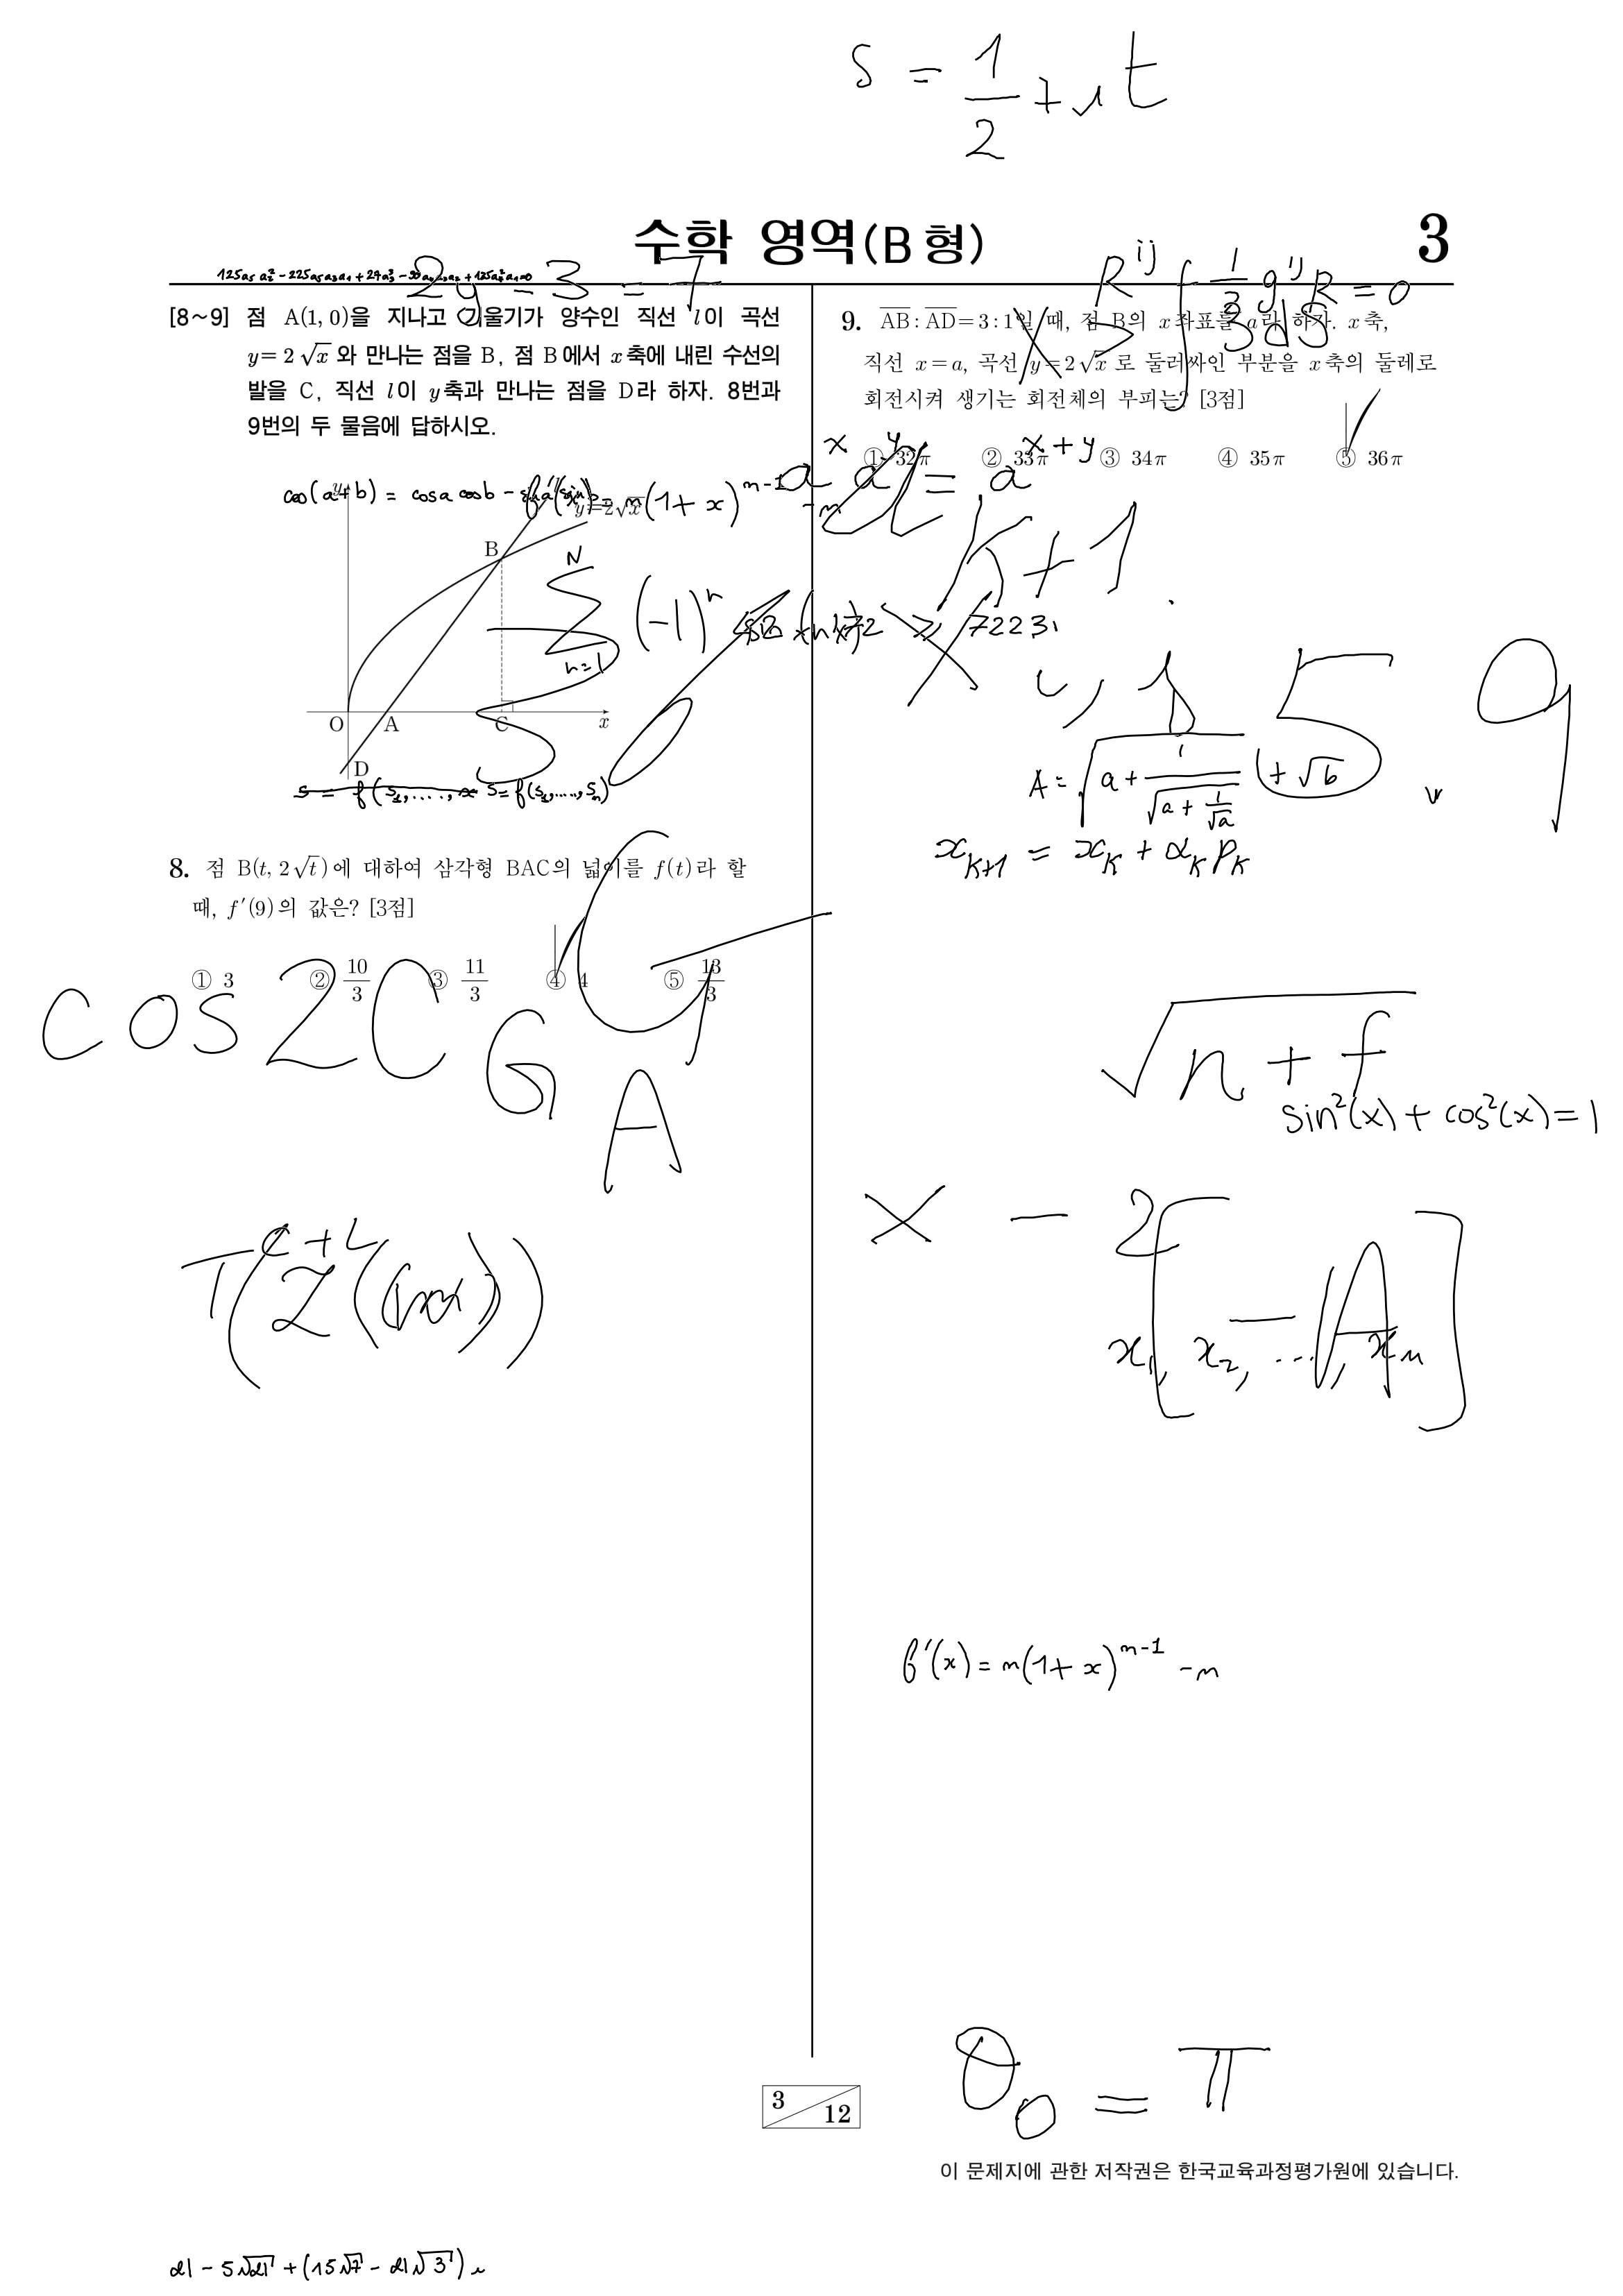 s = 1/2 + it
수학 영역(B 형)
3
2y - 3 = 7
R^{ij} - \frac{1}{3} g^{ij} R = 0
[8~9] 점 A(1, 0)을 지나고 기울기가 양수인 직선 l이 곡선
y = 2√x 와 만나는 점을 B, 점 B에서 x축에 내린 수선의
발을 C, 직선 l이 y축과 만나는 점을 D라 하자. 8번과
9번의 두 물음에 답하시오.
cos(a+b) = cosa cosb -
y = 2√x
y
B
O
A
C
x
D
\sum_{n=1}^{N} (-1)^n
s = f(s_1, ...., s_n)
8. 점 B(t, 2√t)에 대하여 삼각형 BAC의 넓이를 f(t)라 할
때, f′(9)의 값은? [3점]
① 3 ② 10/3 ③ 11/3 ④ 4 ⑤ 13/3
cos 2C
G
A
9. AB : AD = 3 : 1일 때, 점 B의 x좌표를 a라 하자. x축,
직선 x = a, 곡선 y = 2√x 로 둘러싸인 부분을 x축의 둘레로
회전시켜 생기는 회전체의 부피는? [3점]
① 32π ② 33π ③ 34π ④ 35π ⑤ 36π
a^x a^y = a^{x+y}
K+1
≥ 72231
5
9
A = \sqrt{a + \frac{1}{\sqrt{a + \frac{1}{\sqrt{a}}}}} + √b
x_{k+1} = x_k + α_k p_k
√(n + f)
sin²(x) + cos²(x) = 1
x - 2
x_1, x_2, ..., x_n
f'(x) = n(1+x)^{n-1} - n
θ_0 = π
3
12
이 문제지에 관한 저작권은 한국교육과정평가원에 있습니다.
21 - 5√21 + (15√7 - 21√3)i